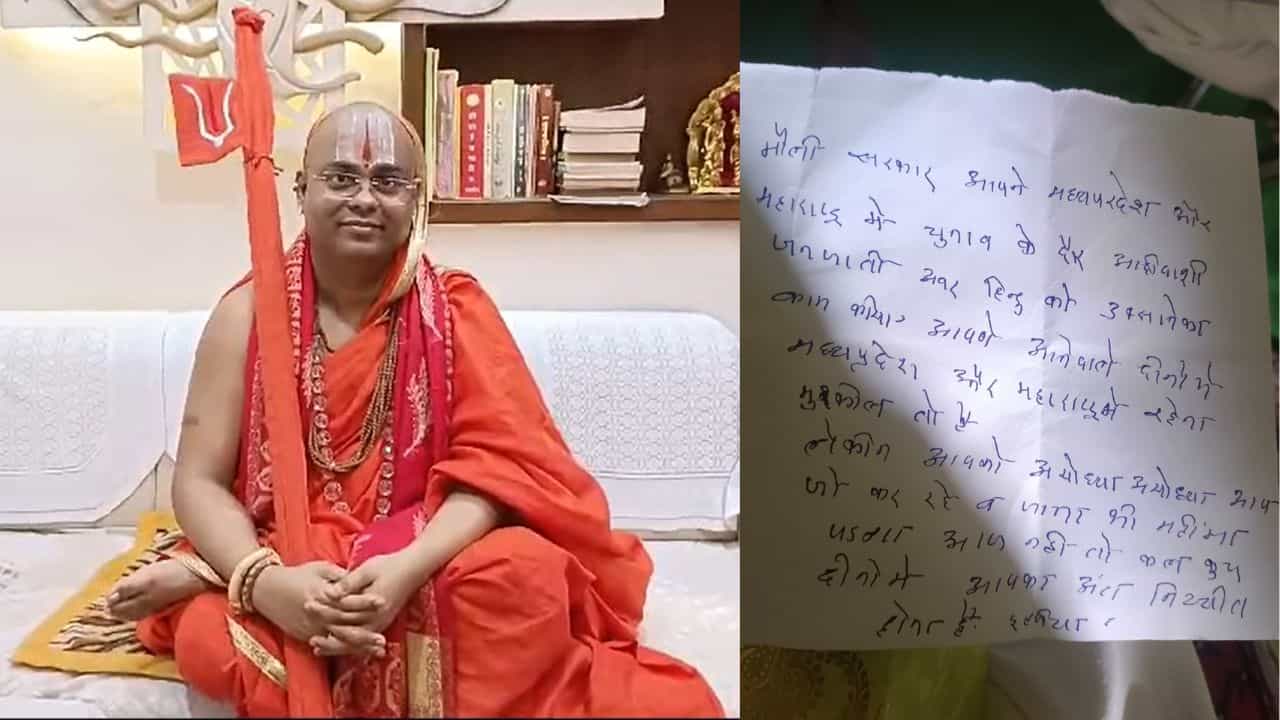 मौली सरकार आपने मध्यपरदेश और
महाराष्ट्र मे चुनाव के दैर आदीवाशी
जनजाती अवर हिन्दु को उकसानेका
काम कीया आपणे आनेवाले दीनो मे
मध्यप्रदेश और महाराष्ट्रमे रहेना
मुश्कील तो है
लेकीन आपको अयोध्या अयोध्या आप
जो कर रहे व जागा भी महांगा
पडेगा आज नही तो कल कुच
दीनो मे आपका अंत निश्चीत
होना है